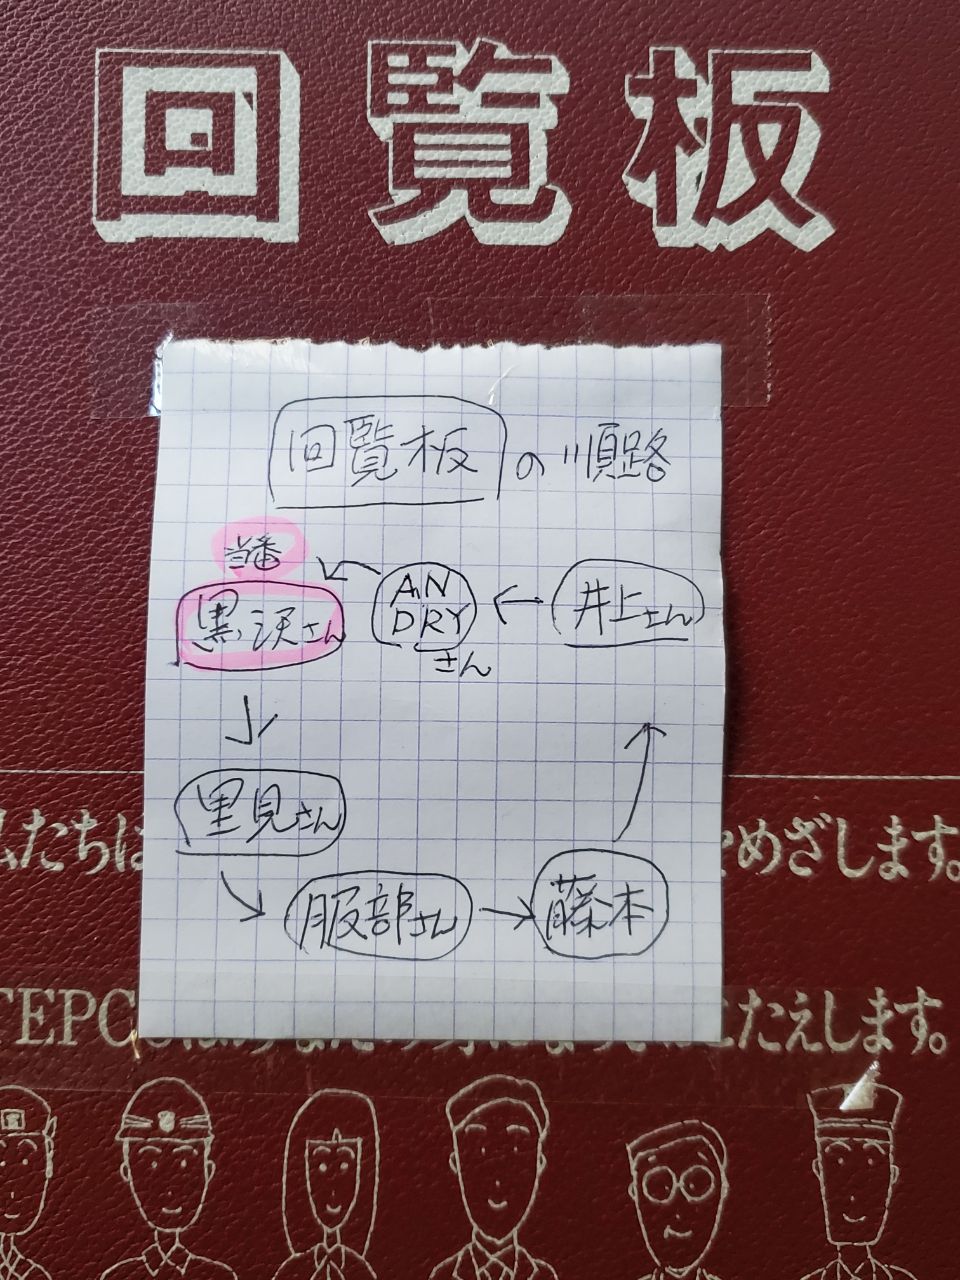 回覧板
回覧板の順路
当番
黒沢さん
ANDRYさん
井上さん
里見さん
服部さん
藤本
私たちは
をめざします。
TEPCO
たえします。